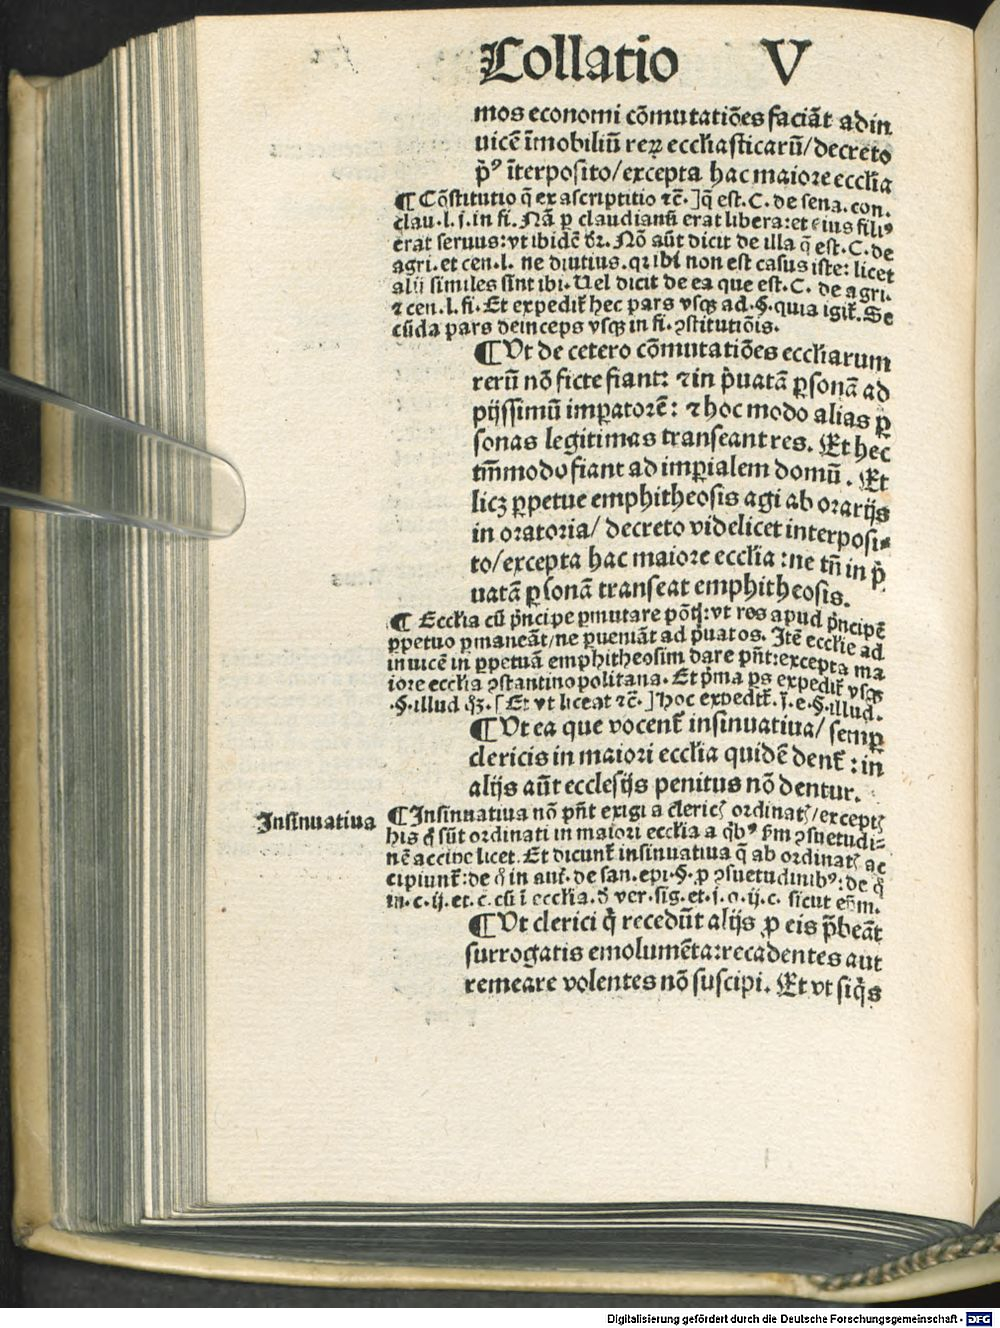 Collatio V
mos economi cõmutatiões faciãt ad in
uicẽ ĩmobiliũ reꝝ eccl̃iasticarũ/decreto
p̃⁹ ĩterposito/excepta hac maiore eccl̃ia
¶ Cõstitutio q̃ ex ascriptitio ⁊c̃.]q̃ est.C. de sena.con.
clau.l.j.in fi. Nã ꝑ claudianũ erat libera:et eius fili⁹
erat seruus:vt ibidẽ dr̃. Nõ aũt dicit de illa q̃ est.C.de
agri.et cen.l. ne diutius.qꝛ ibi non est casus iste: licet
alij similes sint ibi. Uel dicit de ea que est.C. de agri.
⁊ cen.l.fi. Et expedit̃ hec pars vsqꝫ ad.§.quia igit̃. Se
cũda pars deinceps vsqꝫ in fi.ꝯstitutiõis.
¶ Vt de cetero cõmutatiões eccl̃iarum
rerũ nõ ficte fiant: ⁊ in p̃uatã ꝑsonã ad
pijssimũ imꝑatorẽ: ⁊ hoc modo alias ꝑ
sonas legitimas transeant res. Et hec
tm̃modo fiant ad imꝑialem domũ. Et
licꝫ ꝑpetue emphitheosis agi ab orarijs
in oratoria/ decreto videlicet interposi⸗
to/excepta hac maiore eccl̃ia :ne tñ in p̃
uatã ꝑsonã transeat emphitheosis.
¶ Eccl̃ia cũ p̃ncipe ꝑmutare põt: vt res apud p̃ncipẽ
ꝑpetuo ꝑmaneãt/ne ꝑueniãt ad p̃uatos. Itẽ eccl̃ie ad
inuicẽ in ꝑpetuã emphitheosim dare pñt:excepta ma
iore eccl̃ia ꝯstantinopolitana. Et p̃ma ps expedit̃ vsqꝫ
.§.illud qꝫ.[Et vt liceat ⁊c̃.]hoc expedit̃.j.e.§.illud.
¶ Vt ea que vocent̃ insinuatiua/ semꝑ
clericis in maiori eccl̃ia quidẽ dent̃ : in
alijs aũt ecclesijs penitus nõ dentur.
Insinuatiua
¶ Insinuatiua nõ pñt exigi a cleric̃ ordinat̃/except̃
his q̃ sũt ordinati in maiori eccl̃ia a qb⁹ s̃m ꝯsuetudi⸗
nẽ accipe licet. Et dicunt̃ insinuatiua q̃ ab ordinat̃ ac
cipiunt̃:de q̃ in aut̃.de san.epi.§.ꝓ ꝯsuetudinib⁹:de q̃
in.c.ij.et.c̃.cũ ĩ eccl̃ia.
¶ Vt clerici q̃ recedũt alijs ꝓ eis p̃beãt
surrogatis emolumẽta:recadentes aut
remeare volentes nõ suscipi. Et vt siq̃s
Digitalisierung gefördert durch die Deutsche Forschungsgemeinschaft - DFG